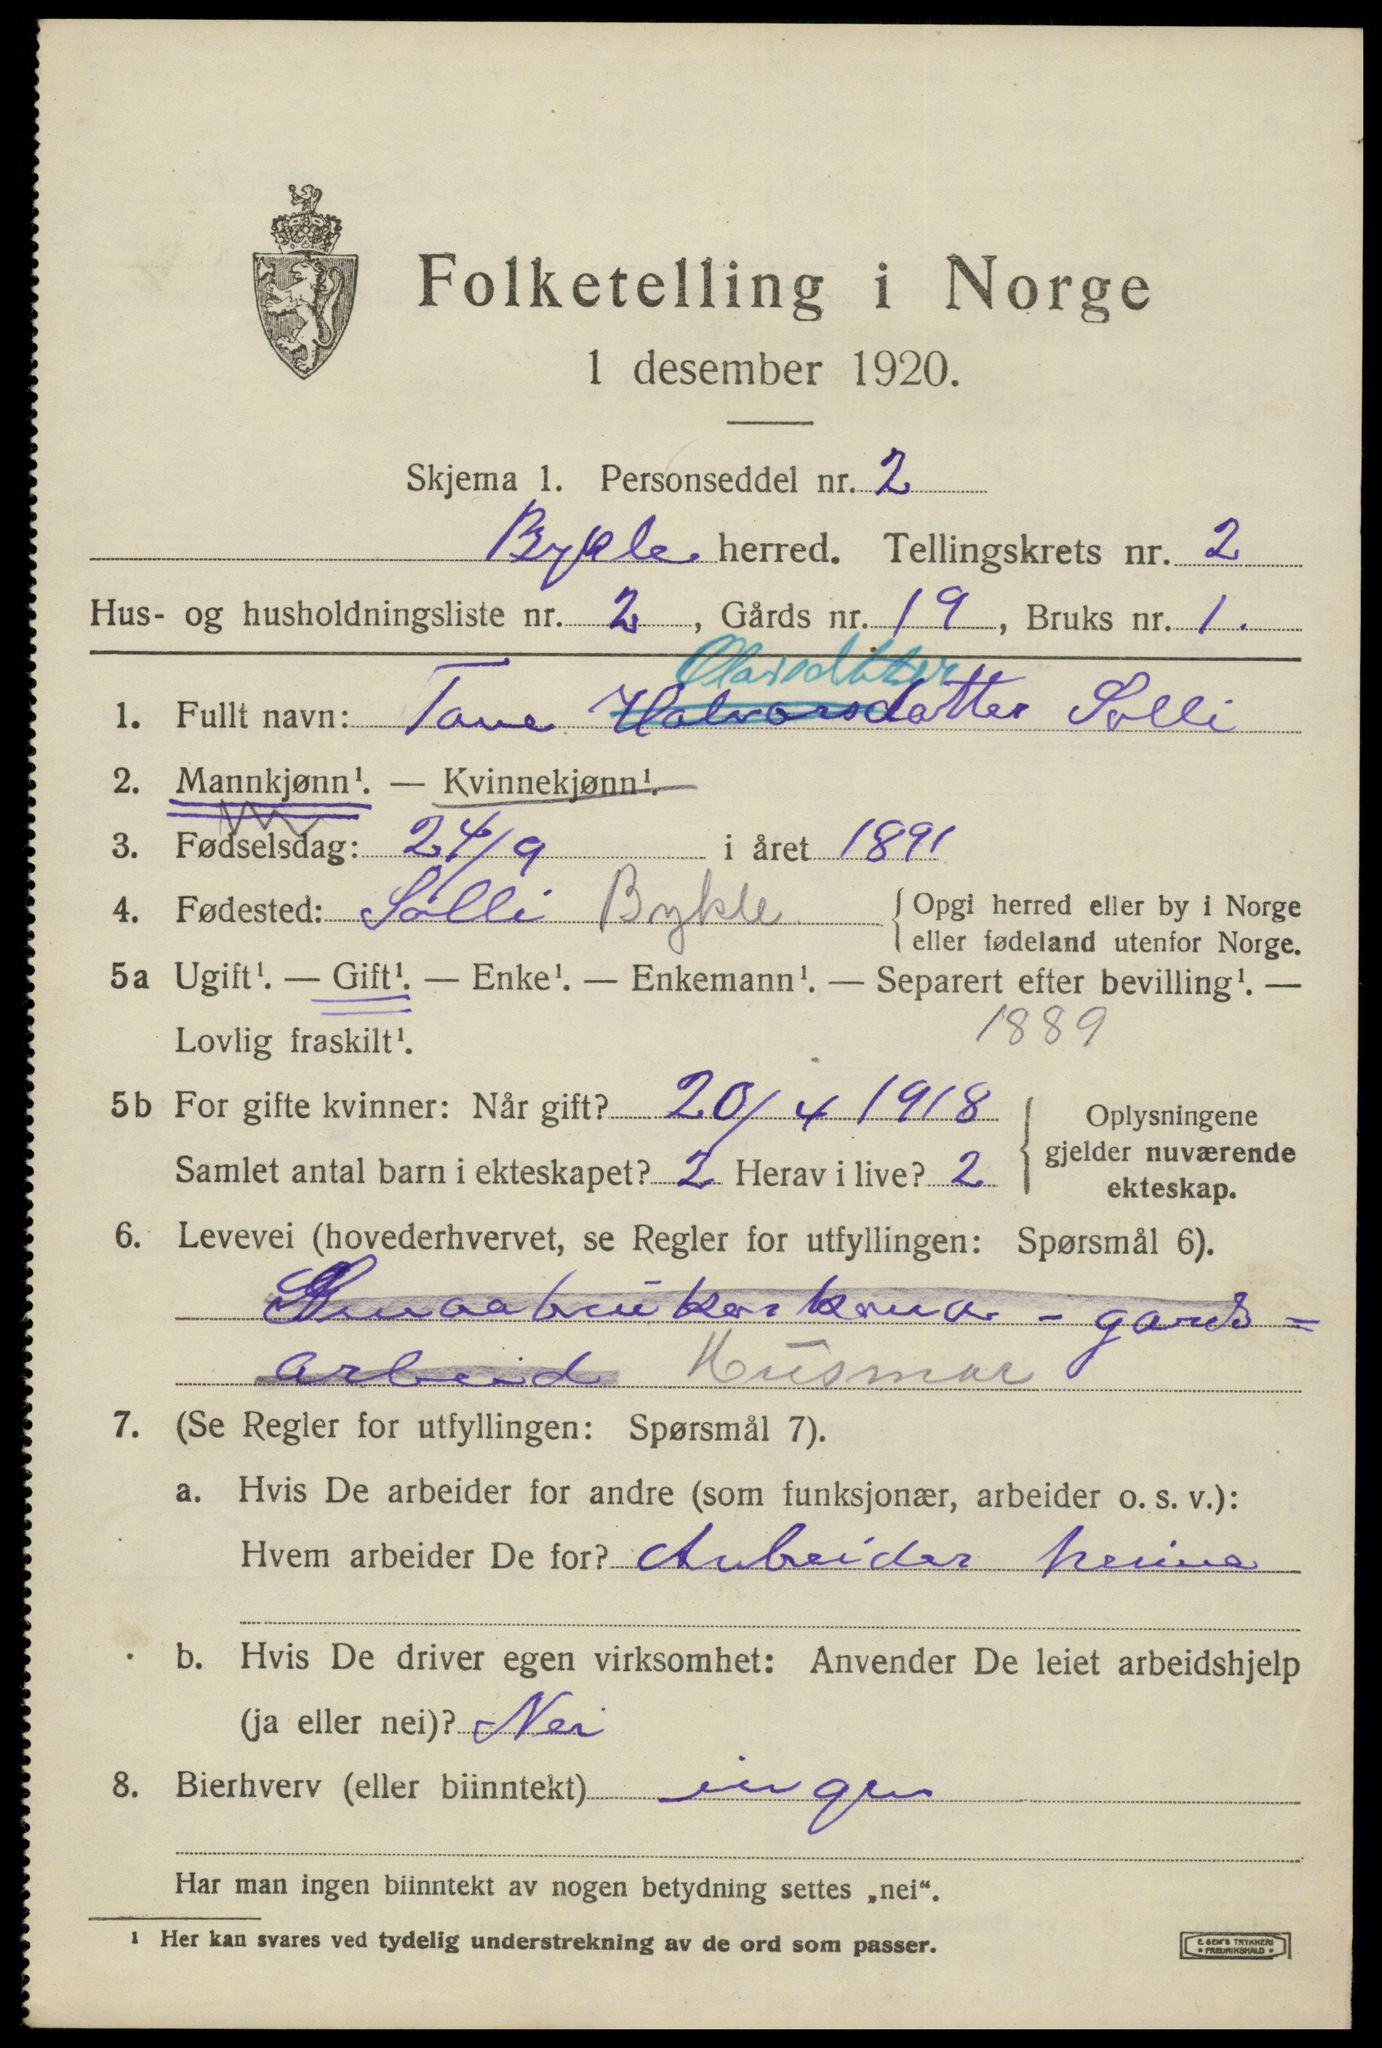 Folketelling i Norge
1 desember 1920.
Skjema 1. Personseddel nr. 2
Bykle herred. Tellingskrets nr. 2
Hus- og husholdningsliste nr. 2, Gårds nr. 19, Bruks nr. 1.
Olavsdatter
1. Fullt navn: Tone Halvorsdatter Solli
2. Mannkjønn¹. — Kvinnekjønn¹.
3. Fødselsdag: 24/9 i året 1891
4. Fødested: Solli Bykle { Opgi herred eller by i Norge
eller fødeland utenfor Norge.
5a Ugift¹. — Gift¹. — Enke¹. — Enkemann¹. — Separert efter bevilling¹. —
Lovlig fraskilt¹. 1889
5b For gifte kvinner: Når gift? 20/4 1918 { Oplysningene
gjelder nuværende
Samlet antal barn i ekteskapet? 2 Herav i live? 2
ekteskap.
6. Levevei (hovederhvervet, se Regler for utfyllingen: Spørsmål 6).
Smaabrukarkona - gards=
arbeid Husmor
7. (Se Regler for utfyllingen: Spørsmål 7).
a. Hvis De arbeider for andre (som funksjonær, arbeider o. s. v.):
Hvem arbeider De for? Arbeider heime
b. Hvis De driver egen virksomhet: Anvender De leiet arbeidshjelp
(ja eller nei)? Nei
8. Bierhverv (eller biinntekt) ingen
Har man ingen biinntekt av nogen betydning settes „nei“.
¹ Her kan svares ved tydelig understrekning av de ord som passer.
E. SEM'S TRYKKERI
• FREDRIKSHALD •